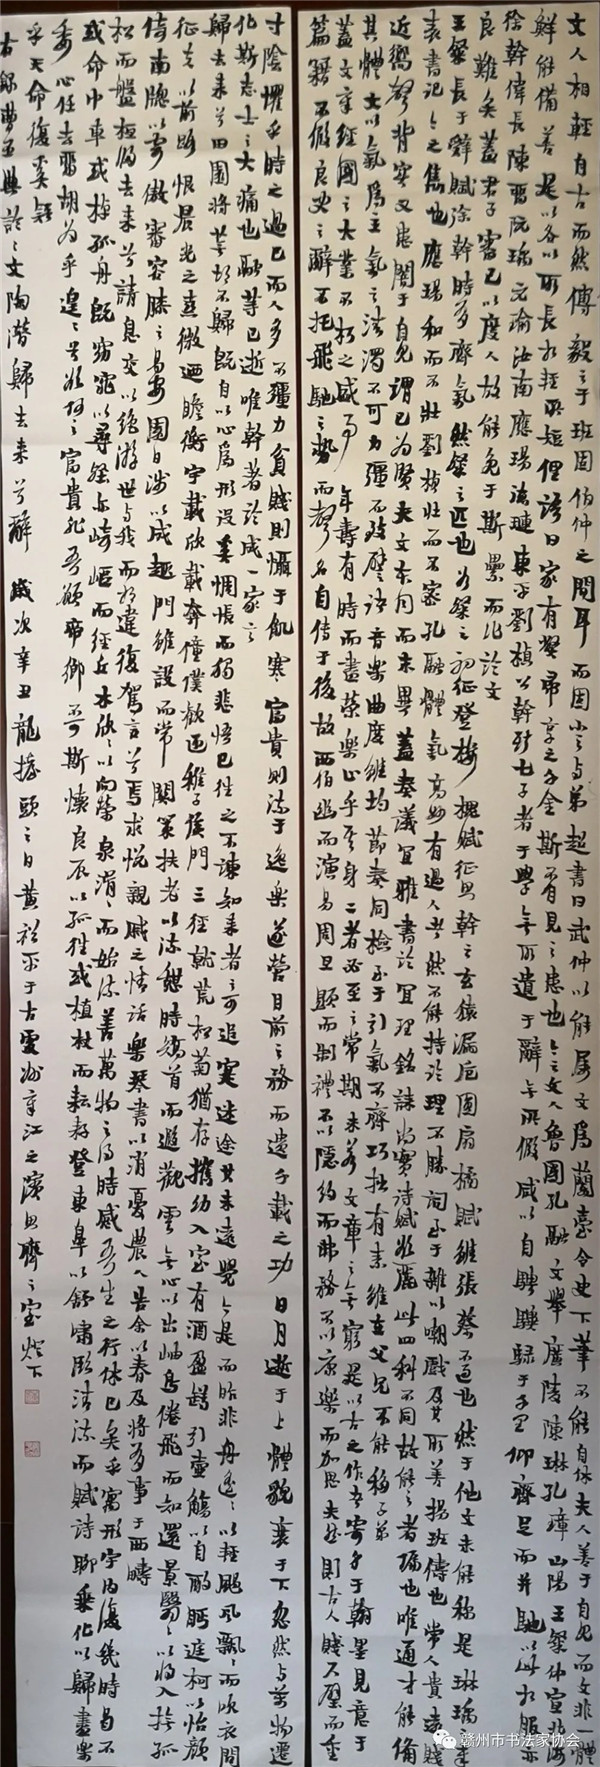 文人相輕自古而然傅毅之于班固伯仲之間耳而固小之与弟超書曰武仲以能属文爲蘭臺令史下筆不能自休夫人善于自見而文非一體
鮮能備善是以各以所長相輕所短俚語曰家有弊帚享之千金斯不自見之患也今之文人魯國孔融文舉廣陵陳琳孔璋山陽王粲仲宣北海
徐幹偉長陳留阮瑀元瑜汝南應瑒德璉東平劉楨公幹斯七子者于學無所遺于辭無所假咸以自騁驥騄于千里仰齊足而并馳以此相服亦
良難矣蓋君子審己以度人故能免于斯累而作論文
王粲長于辭賦徐幹時有齊氣然粲之匹也如粲之初征登樓槐賦征思幹之玄猿漏卮圓扇橘賦雖張蔡不過也然于他文未能称是琳瑀之章
表書記今之雋也應瑒和而不壯劉楨壯而不密孔融體氣高妙有過人者然不能持論理不勝詞至于雜以嘲戲及其所善揚班儔也常人貴遠賤
近嚮聲背實又患闇于自見謂己為賢夫文本同而末異蓋奏議宜雅書論宜理銘誄尚實詩賦欲麗此四科不同故能之者偏也唯通才能備
其體文以氣爲主氣之清濁不可力彊而致譬諸音樂曲度雖均節奏同檢至于引氣不齊巧拙有素雖在父兄不能移子弟
蓋文章經國之大業不朽之盛事年壽有時而盡榮樂止乎其身二者必至之常期未若文章之無窮是以古之作者寄身于翰墨見意于
篇籍不假良史之辭不托飛馳之勢而聲名自传于後故西伯幽而演易周旦顯而制禮不以隱約而弗務不以康樂而加思夫然則古人賤尺璧而重
寸陰懼乎時之過已而人多不彊力貧賤則懾于飢寒富貴則流于逸樂遂營目前之務而遺千載之功日月逝于上體貌衰于下忽然与萬物遷
化斯志士之大痛也融等已逝唯幹著論成一家言
歸去来兮田園將蕪胡不歸既自以心爲形役奚惆悵而獨悲悟已往之不諫知来者之可追寔迷途其未遠覺今是而昨非舟遙〻以輕颺風飄〻而吹衣問
征夫以前路恨晨光之熹微迺瞻衡宇載欣載奔僮僕歡迎稚子候門三徑就荒松菊猶存携幼入室有酒盈樽引壺觴以自酌眄庭柯以怡顏
倚南牕以寄傲審容膝之易安園日涉以成趣門雖設而常關策扶老以流憩時矯首而遐觀雲無心以出岫鳥倦飛而知還景翳〻以將入撫孤
松而盤桓歸去来兮請息交以絶游世与我而相違復駕言兮焉求悅親戚之情話樂琴書以消憂農人告余以春及將有事于西疇
或命巾車或棹孤舟既窈窕以尋壑亦崎嶇而經丘木欣〻以向榮泉涓〻而始流善萬物之得時感吾生之行休已矣乎寓形宇内復幾時曷不
委心任去留胡為乎遑〻兮欲何之富貴非吾願帝鄉不可期懷良辰以孤往或植杖而耘耔登東皋以舒嘯臨清流而賦詩聊乘化以歸盡樂
乎天命復奚疑
右録曹丕典論〻文陶潛歸去来兮辭 歲次辛丑龍抬頭之日黄裕平于古虔州章江之濱思齊之室燈下
赣州市书法家协会